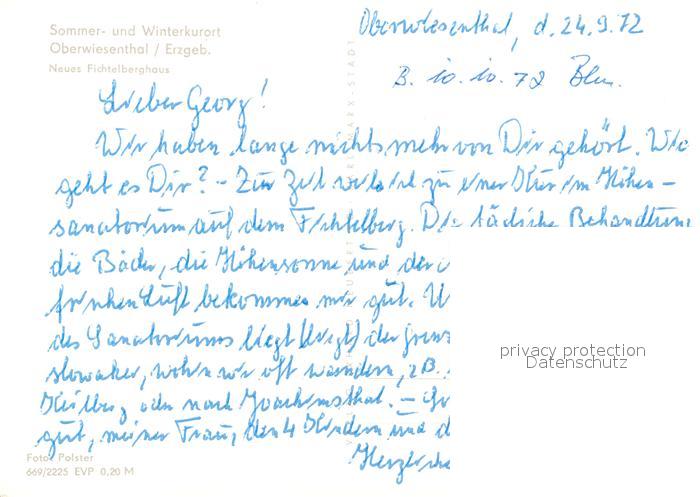 Sommer- und Winterkurort
Oberwiesenthal / Erzgeb.
Neues Fichtelberghaus
Oberwiesenthal, d. 24.9.72
B. 10.10.72
Lieber Georg!
Wir haben lange nichts mehr von Dir gehört. Wie
geht es Dir? - Zur Zeit weile ich zu einer Kur im Höhen-
sanatorium auf dem Fichtelberg. Die tägliche Behandlung
die Bäder, die Höhensonne und der
frischen Luft bekommen mir gut. U
des Sanatoriums liegt (liegt) der Grenz
slowakei, wohin wir oft wandern, z.B.
Keilberg oder nach Joachimsthal. -
gut, meiner Frau, den 4 Kindern und d
Herzliche
privacy protection
Datenschutz
Foto: Polster
669/2225 EVP 0,20 M